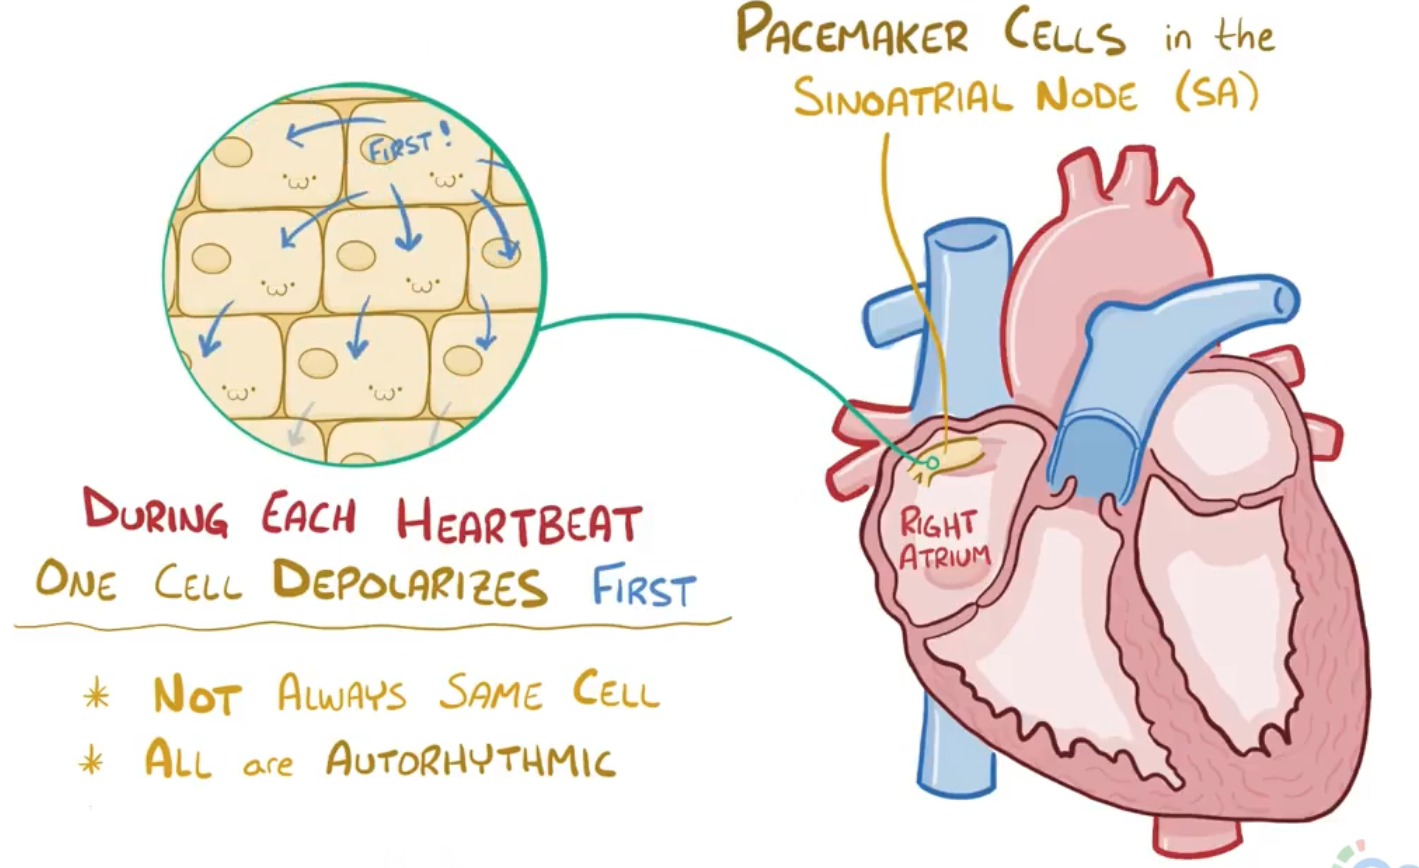 PACEMAKER CELLS in the
SINOATRIAL NODE (SA)
FIRST!
RIGHT
ATRIUM
DURING EACH HEARTBEAT
ONE CELL DEPOLARIZES FIRST
* NOT ALWAYS SAME CELL
* ALL are AUTORHYTHMIC